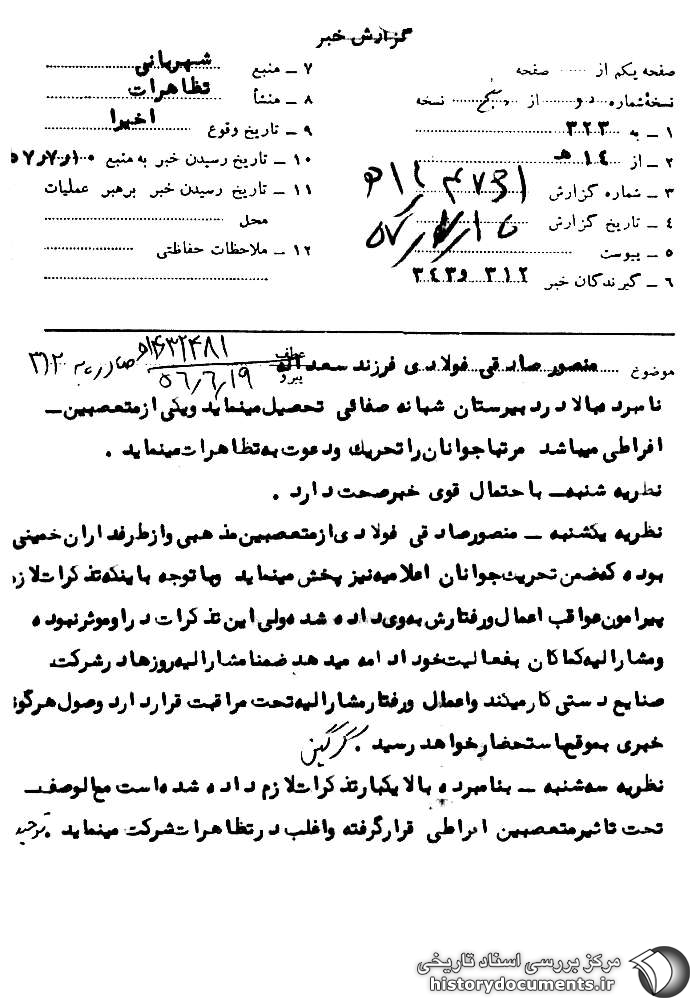 گزارش خبر
صفحه یکم از ........ صفحه
نسخه شماره دو از پنج نسخه
۱ ــ به ۳۲۳
۲ ــ از ۱٤ هـ
۳ ــ شماره گزارش
٤ ــ تاریخ گزارش
۵ ــ پیوست
٦ ــ گیرندگان خبر ۳۱۲ و ۳٤۳
۷ ــ منبع شهربانی
۸ ــ منشأ تظاهرات
۹ ــ تاریخ وقوع اخیرا
۱۰ ــ تاریخ رسیدن خبر به منبع
۱۱ ــ تاریخ رسیدن خبر برهبر عملیات
محل
۱۲ ــ ملاحظات حفاظتی
موضوع منصور صادقی فولادی فرزند سعداله
عطف
پیرو ۵۶/۶/۱۹ صادره به ۳۱۲
نامبرده بالا در دبیرستان شبانه صفائی تحصیل مینماید و یکی از متعصبین ــ
افراطی میباشد مرتبا جوانان را تحریک و دعوت به تظاهرات مینماید .
نظریه شنبه ــ با احتمال قوی خبر صحت دارد .
نظریه یکشنبه ــ منصور صادقی فولادی از متعصبین مذهبی و از طرفداران خمینی
بوده که ضمن تحریک جوانان اعلامیه نیز پخش مینماید و با توجه باینکه تذکرات لازم
پیرامون عواقب اعمال و رفتارش به وی داده شده ولی این تذکرات در او موثر نبوده
و مشارالیه کماکان بفعالیت خود ادامه میدهد ضمنا مشارالیه روزها در شرکت
صنایع دستی کار میکند و اعمال و رفتار مشارالیه تحت مراقبت قرار دارد وصول هرگونه
خبری بموقع باستحضار خواهد رسید . گرگین
نظریه سه شنبه ــ بنامبرده بالا یکبار تذکرات لازم داده شده است مع الوصف ــ
تحت تاثیر متعصبین افراطی قرار گرفته و اغلب در تظاهرات شرکت مینماید . توحید
مرکز بررسی اسناد تاریخی
historydocuments.ir